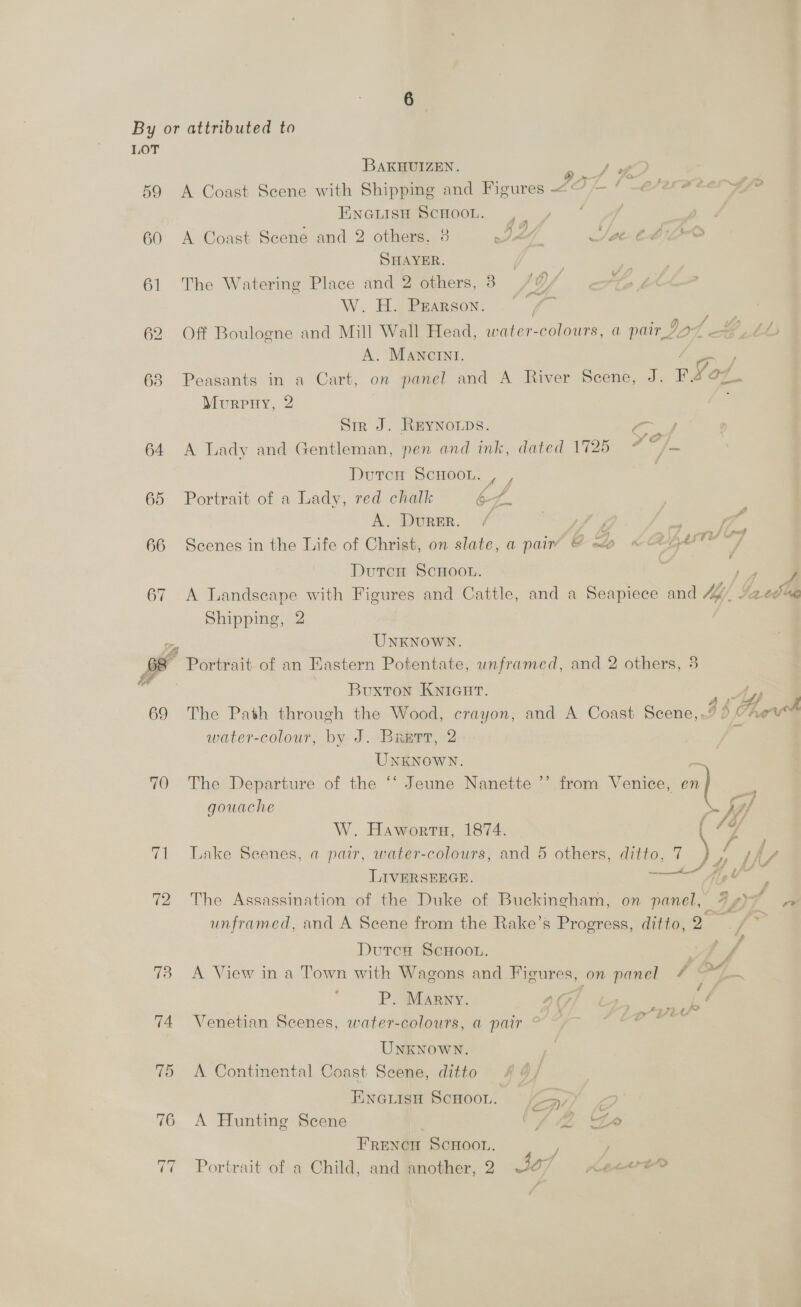 6
By or attributed to
LOT
BAKHUIZEN.
59 A Coast Scene with Shipping and Figures
ENGLISH SCHOOL.
60 A Coast Scene and 2 others, 3
SHAYER.
61 The Watering Place and 2 others, 3
W. H. PEARSON.
62 Off Boulogne and Mill Wall Head, water-colours, a pair
A. MANCINI.
63 Peasants in a Cart, on panel and A River Scene, J. F.
MURPHY, 2
SIR J. REYNOLDS.
64 A Lady and Gentleman, pen and ink, dated 1725
DUTCH SCHOOL.
65 Portrait of a Lady, red chalk
A. DURER.
66 Scenes in the Life of Christ, on slate, a pair
DUTCH SCHOOL.
67 A Landscape with Figures and Cattle, and a Seapiece and
Shipping, 2
UNKNOWN.
68 Portrait of an Eastern Potentate, unframed, and 2 others, 3
BUXTON KNIGHT.
69 The Path through the Wood, crayon, and A Coast Scene,
water-colour, by J. BRETT, 2
UNKNOWN.
70 The Departure of the “ Jeune Nanette ” from Venice, en
gouache
W. HAWORTH, 1874.
71 Lake Scenes, a pair, water-colours, and 5 others, ditto, 7
LIVERSEEGE.
72 The Assassination of the Duke of Buckingham, on panel,
unframed, and A Scene from the Rake’s Progress, ditto, 2
DUTCH SCHOOL.
73 A View in a Town with Wagons and Figures, on panel
P. MARNY.
74 Venetian Scenes, water-colours, a pair
UNKNOWN.
75 A Continental Coast Scene, ditto
ENGLISH SCHOOL.
76 A Hunting Scene
FRENCH SCHOOL.
77 Portrait of a Child, and another, 2